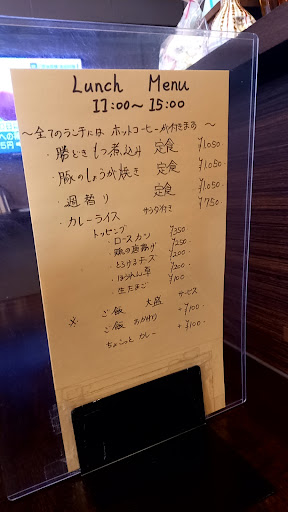 Lunch Menu
11:00～15:00
～全てのランチには ホットコーヒーが付きます～
・勝どきもつ煮込み 定食 ¥1,050
・豚のしょうが焼き 定食 ¥1,050
・週替り 定食 ¥1,050
・カレーライス サラダ付き ¥750
トッピング
・ロースカツ ¥350
・鶏の唐揚げ ¥250
・とろけるチーズ ¥200
・ほうれん草 ¥200
・生たまご ¥100
※ ご飯 大盛 サービス
ご飯 おかわり +¥100
ちょこっと カレー +¥100